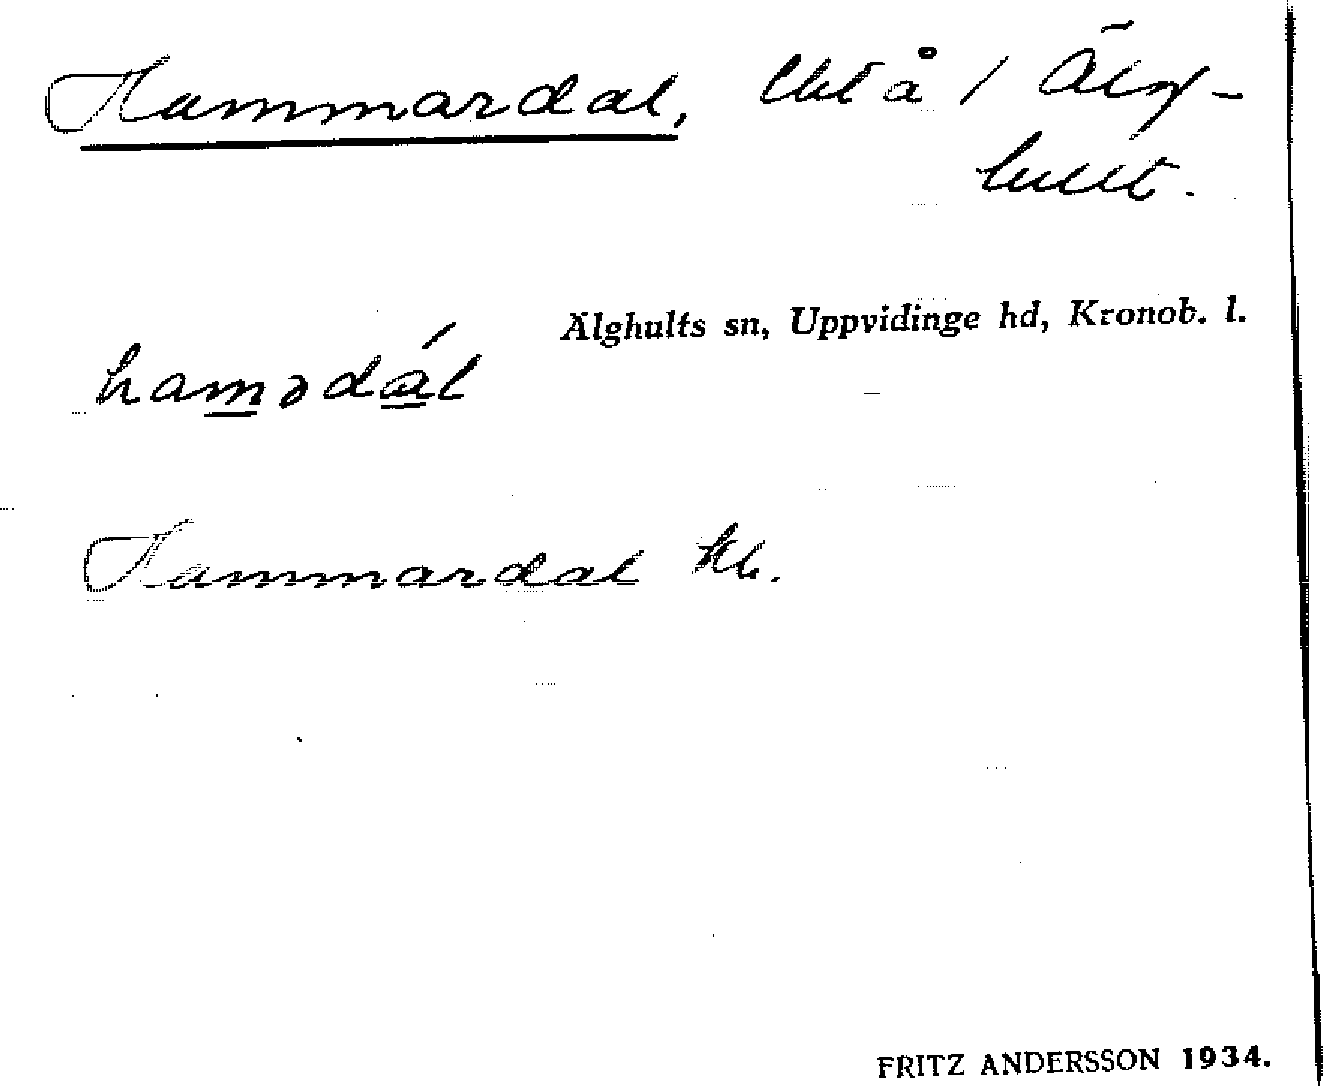 Hammardal, lht å / Älg-
hult.
Älghults sn, Uppvidinge hd, Kronob. l.
hamədál
Hammardal
FRITZ ANDERSSON 1934.